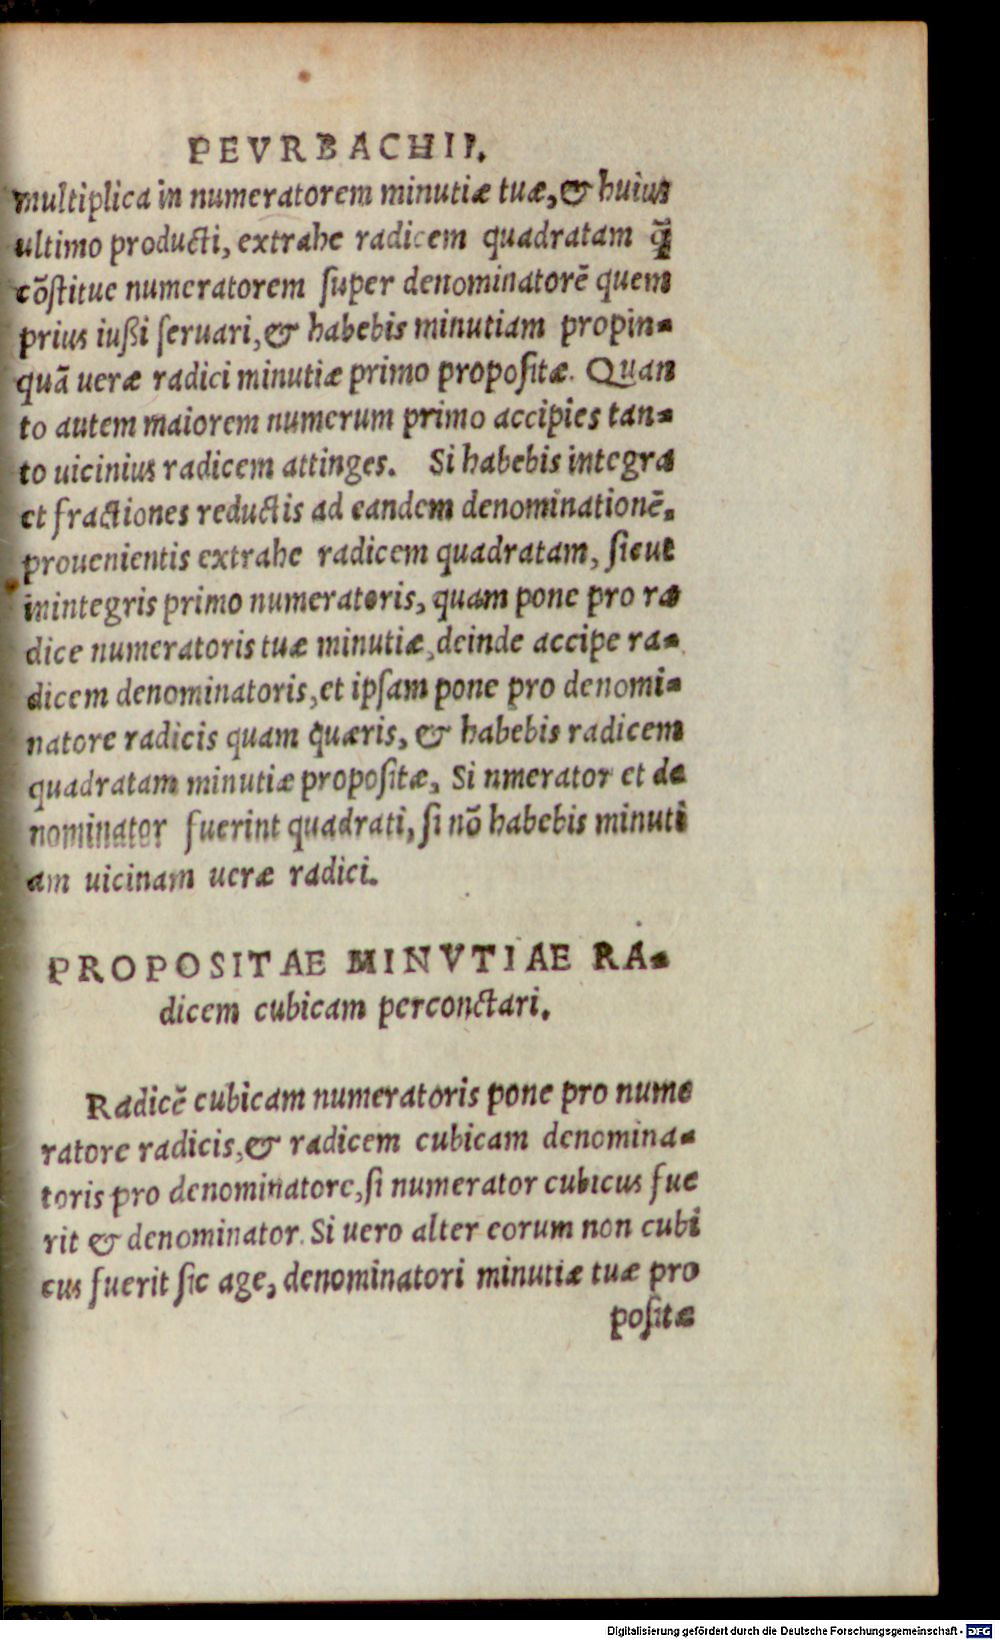 PEVRBACHII.
multiplica in numeratorem minutiæ tuæ, & huius
ultimo producti, extrahe radicem quadratam q̃
cõstitue numeratorem super denominatorẽ quem
prius iußi seruari, & habebis minutiam propin-
quã ueræ radici minutiæ primo propositæ. Quan
to autem maiorem numerum primo accipies tan-
to uicinius radicem attinges. Si habebis integra
et fractiones reductis ad eandem denominationẽ.
prouenientis extrahe radicem quadratam, sicut
inintegris primo numeratoris, quam pone pro ra
dice numeratoris tuæ minutiæ, deinde accipe ra-
dicem denominatoris, et ipsam pone pro denomi-
natore radicis quam quæris, & habebis radicem
quadratam minutiæ propositæ, Si nmerator et de
nominator fuerint quadrati, si nõ habebis minuti
am uicinam ueræ radici.
PROPOSITAE MINVTIAE RA-
dicem cubicam perconctari.
Radicẽ cubicam numeratoris pone pro nume
ratore radicis, & radicem cubicam denomina-
toris pro denominatore, si numerator cubicus fue
rit & denominator. Si uero alter eorum non cubi
cus fuerit sic age, denominatori minutiæ tuæ pro
positæ
Digitalisierung gefördert durch die Deutsche Forschungsgemeinschaft - DFG